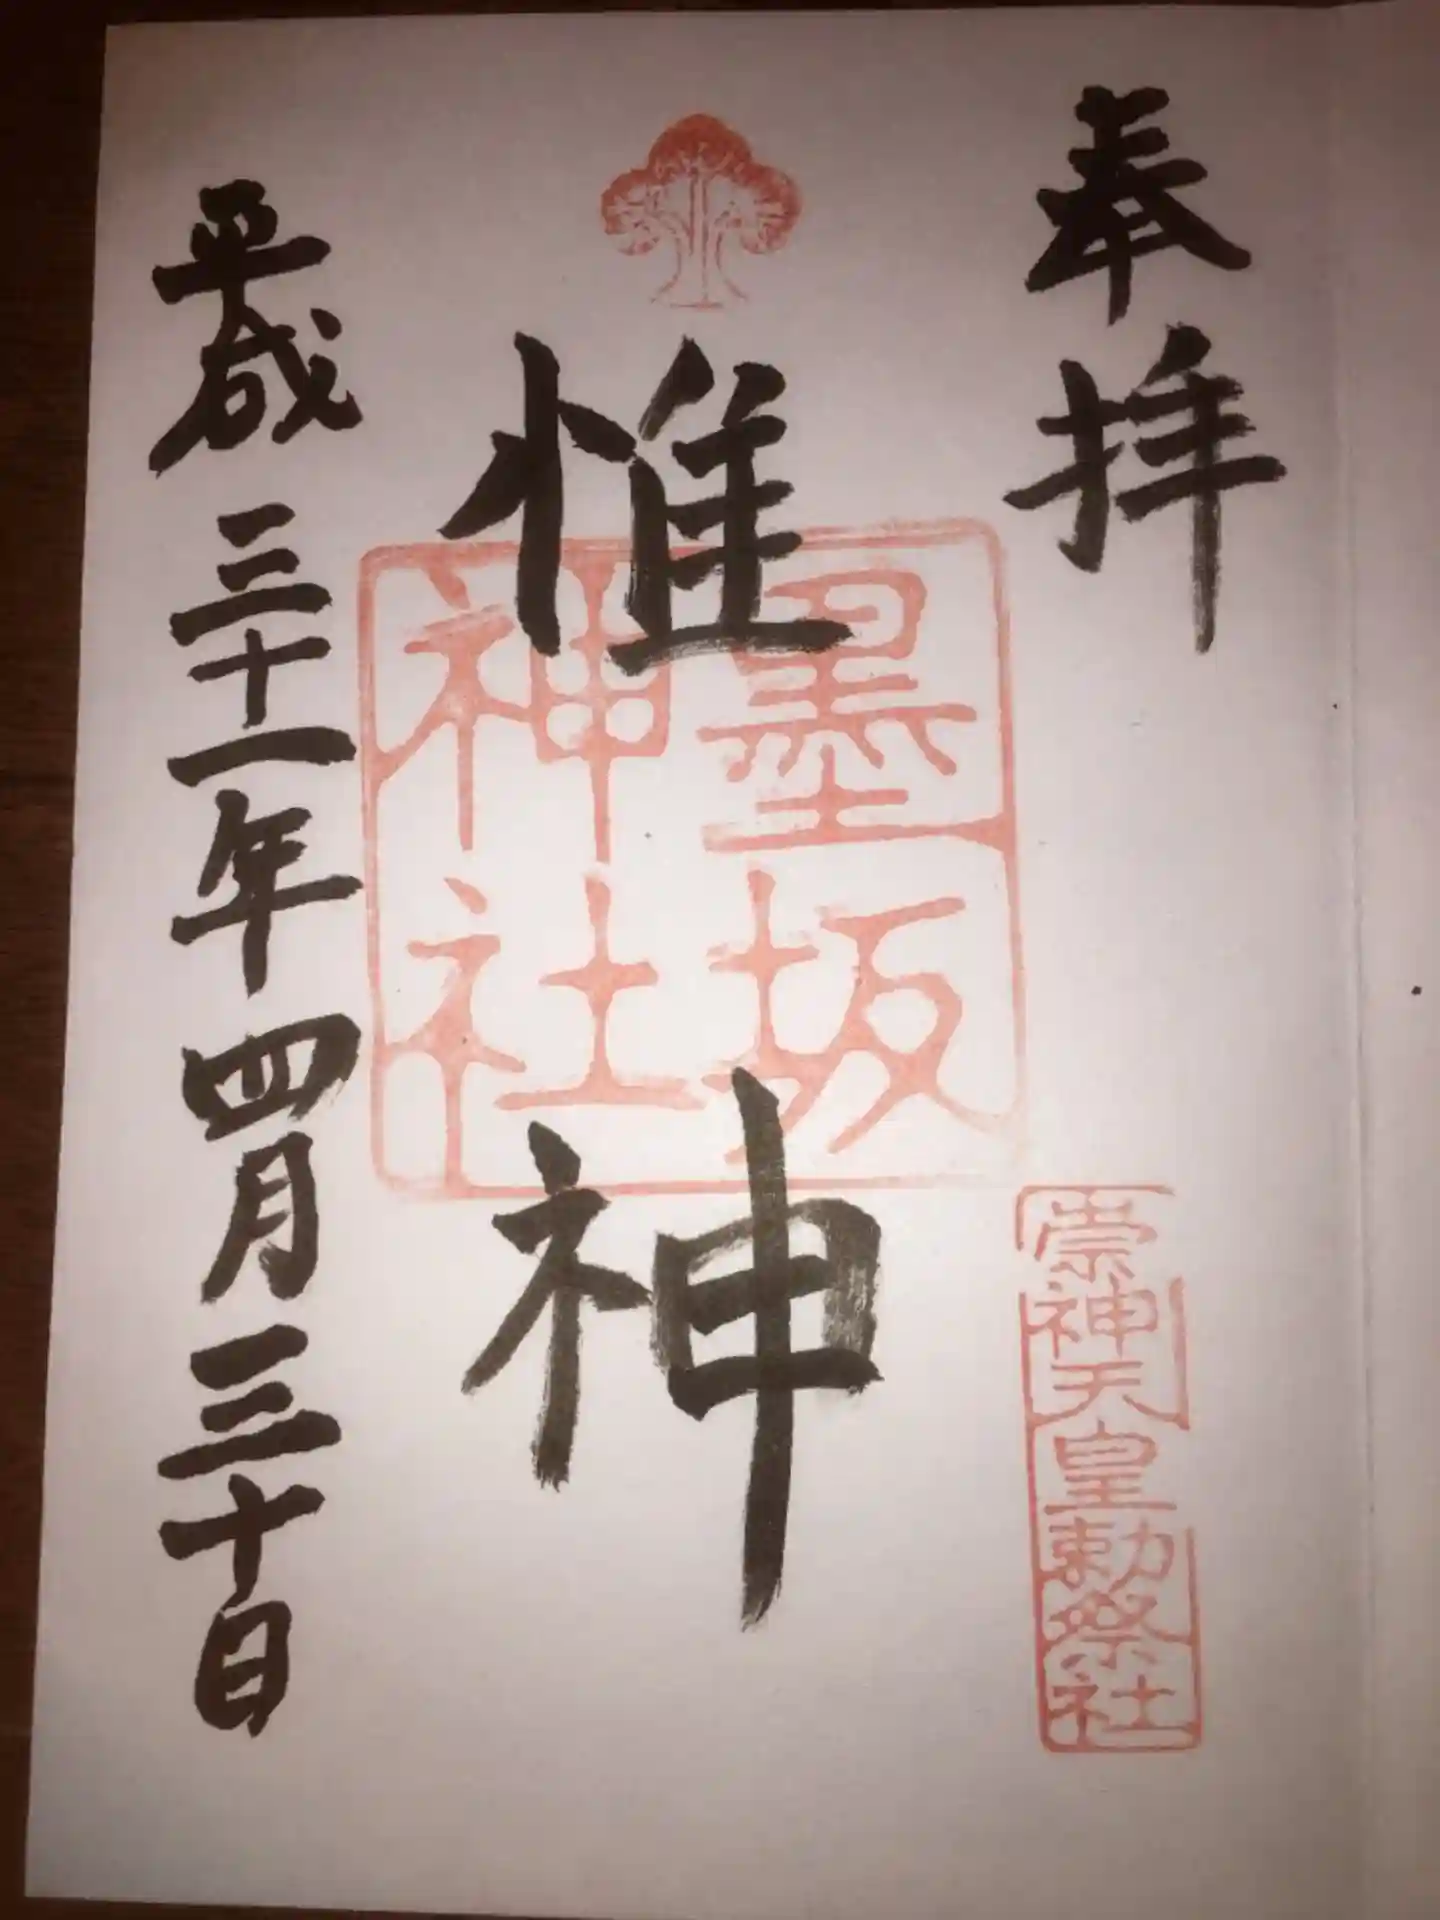 奉拝
崇神天皇勅祭社
惟神
墨坂
神社
平成三十一年四月三十日